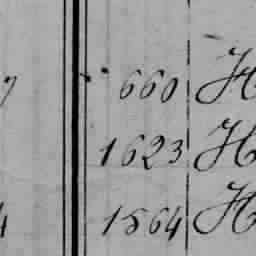 7 660 H
1623 H
4 1564 H